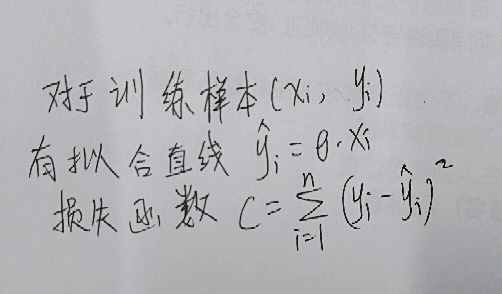 对于训练样本(xi, yi)
有拟合直线 ŷi = θ·xi
损失函数 C = ∑_{i=1}^{n} (yi - ŷi)²